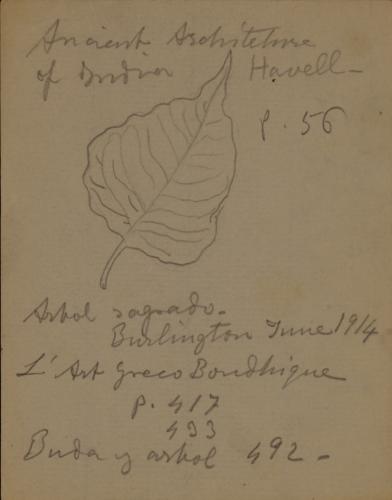 Ancient Architeture
of India Havell -
p. 56
Arbol sagrado -
Burlington June 1914
L'Art Greco Boudhique
p. 417
433
Buda y arbol 492 -